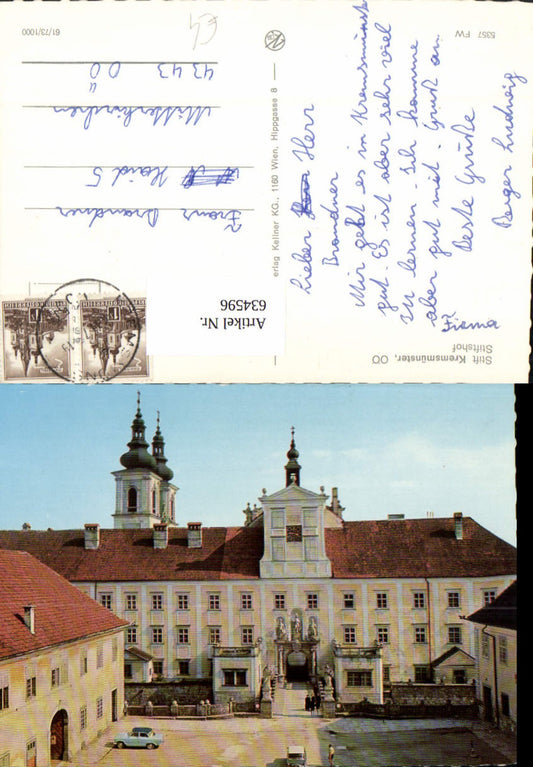 Lieber Herr
Brandner
Mir geht es in Kremsmünster
gut. Es ist aber sehr viel
zu lernen. Ich komme
aber gut mit. Gruß an
Beste Grüße
Berger Ludwig
Firma
Franz Brandner
Haid 5
Mitterkirchen
4343 OÖ
Stift Kremsmünster, OÖ
Stiftshof
erlag Kellner KG., 1160 Wien, Hippgasse 8
5357 FW
61/73/1000
Artikel Nr.
634596